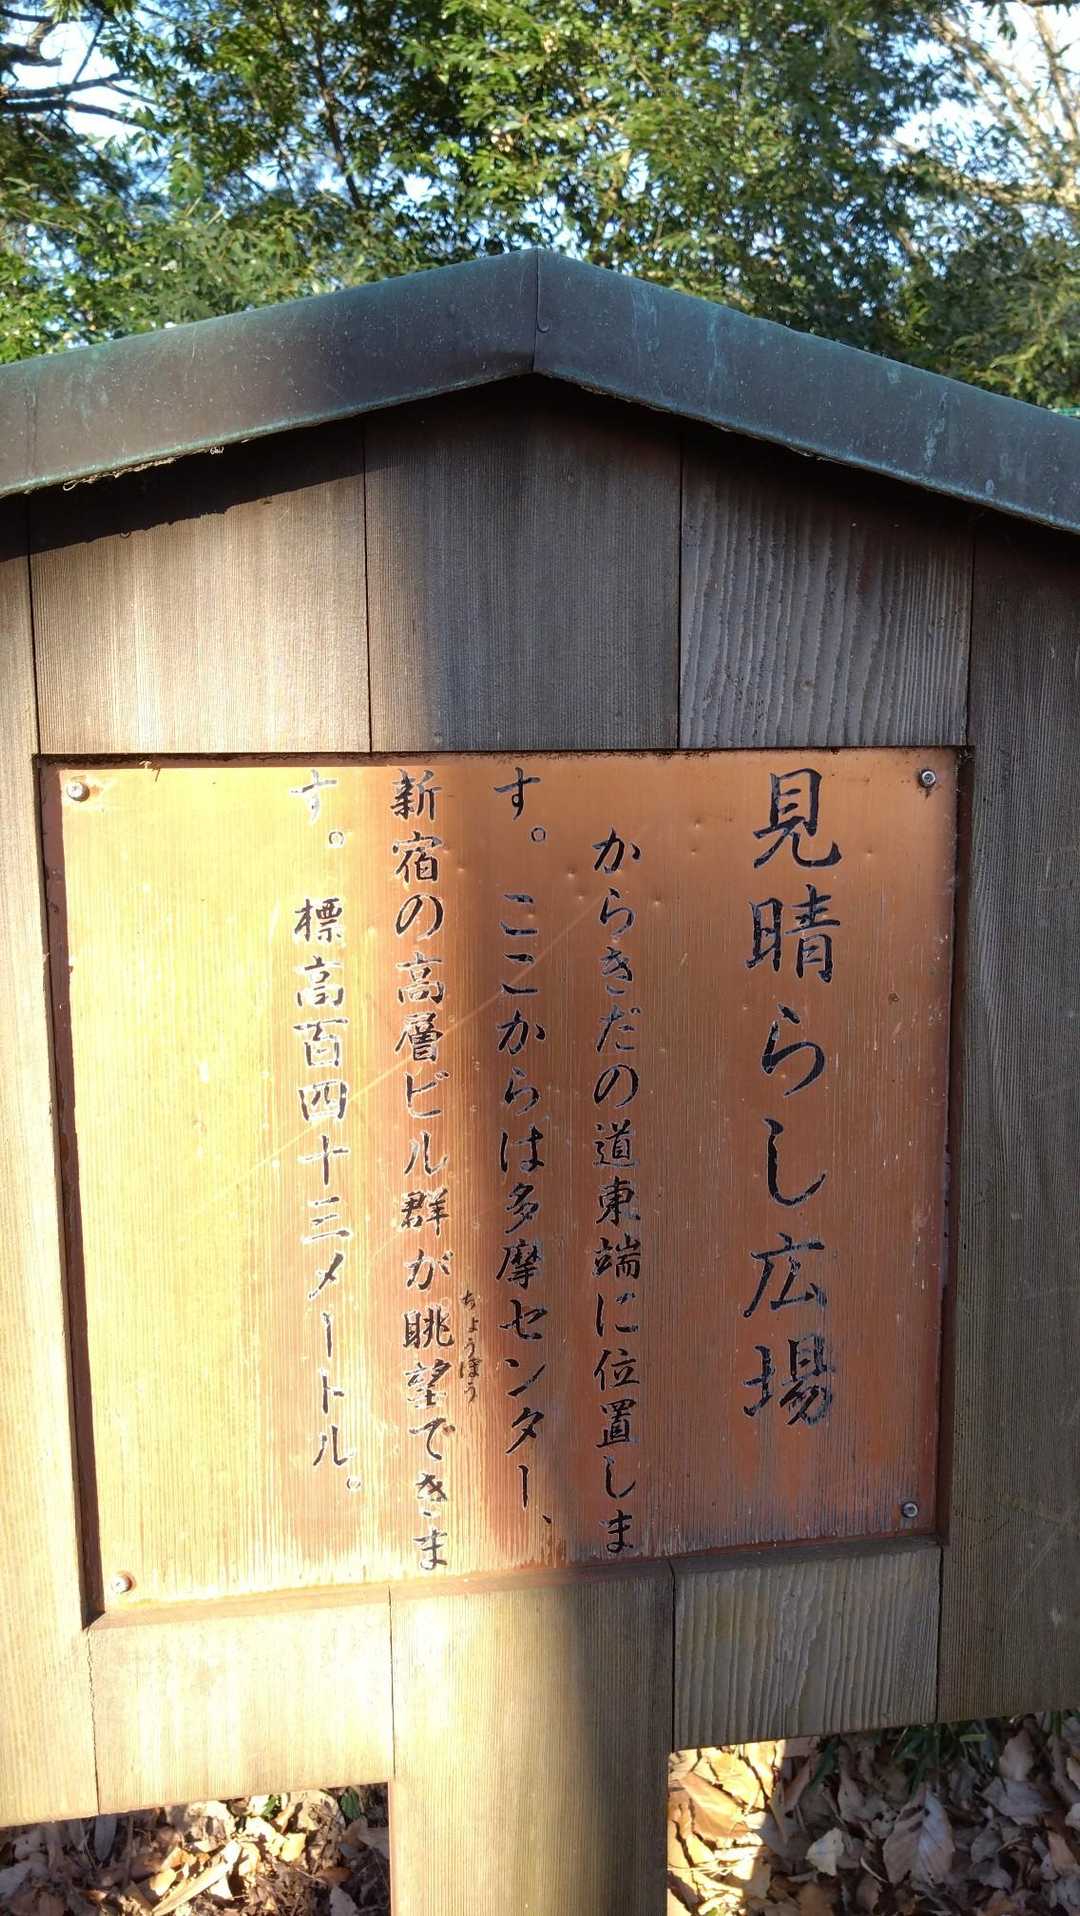 見晴らし広場
からきだの道東端に位置しま
す。ここからは多摩センター、
新宿の高層ビル群が眺望できま
ちょうぼう
す。標高百四十三メートル。